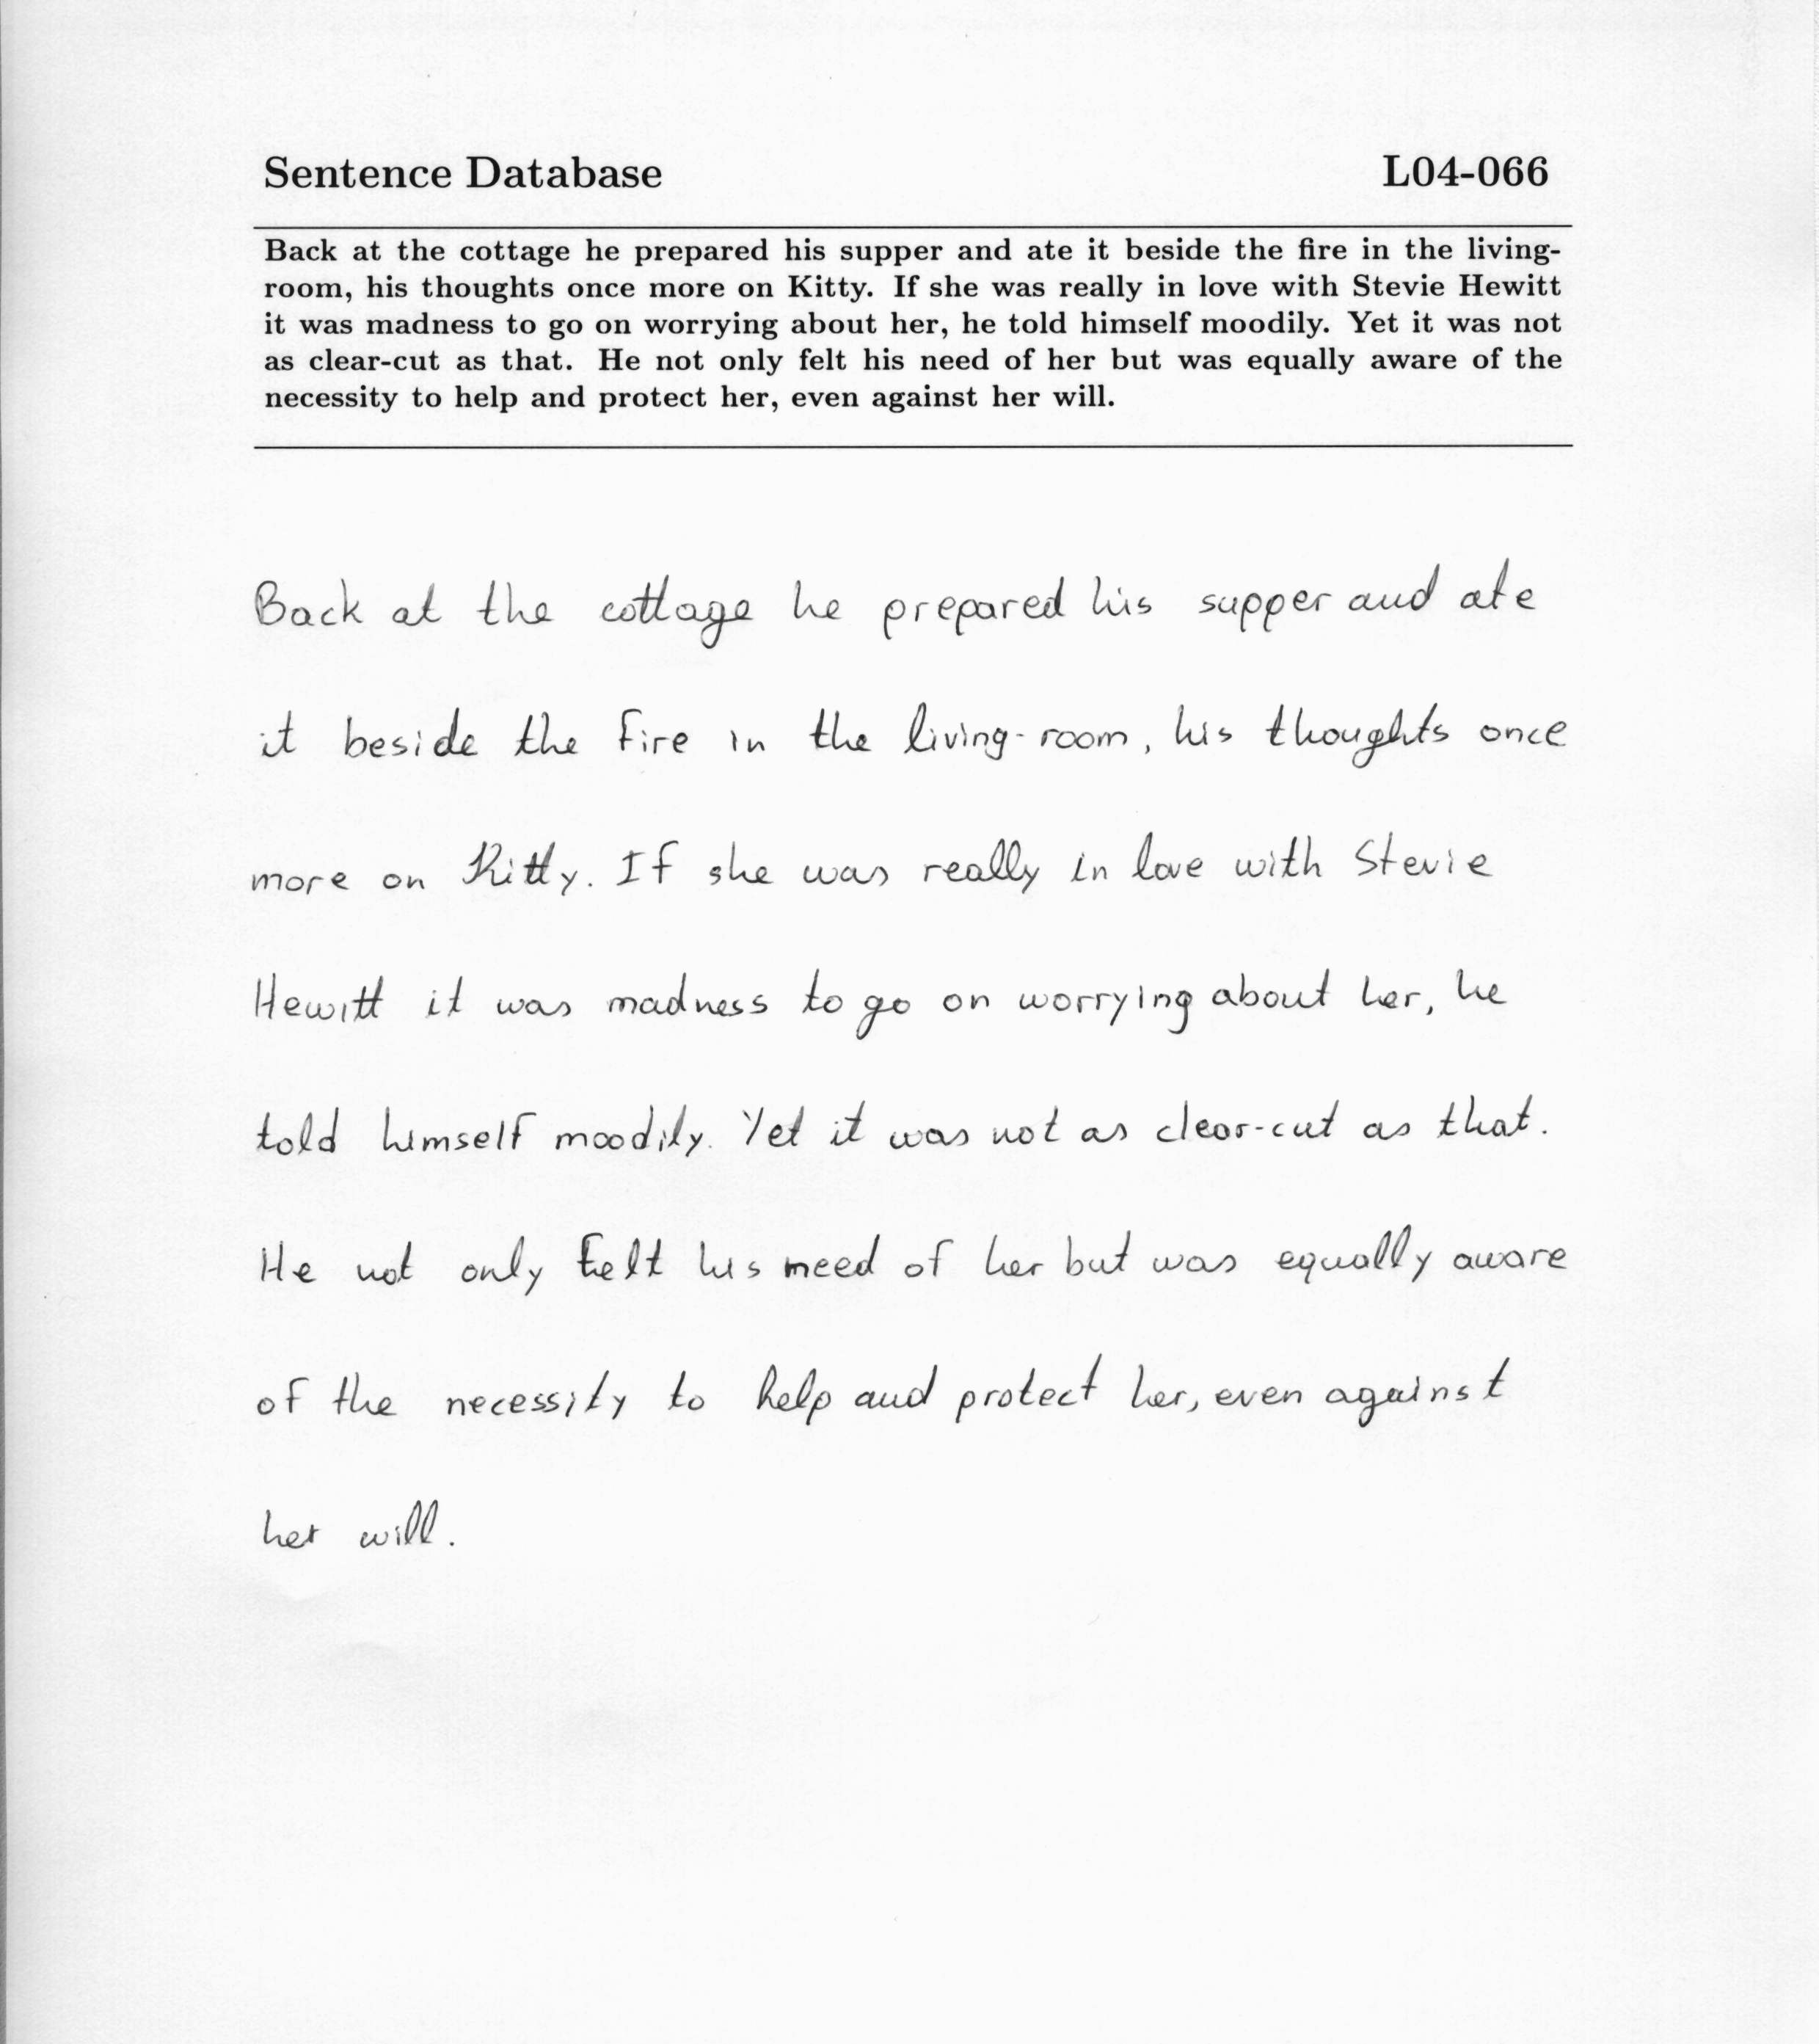 Sentence Database L04-066
Back at the cottage he prepared his supper and ate it beside the fire in the living-
room, his thoughts once more on Kitty. If she was really in love with Stevie Hewitt
it was madness to go on worrying about her, he told himself moodily. Yet it was not
as clear-cut as that. He not only felt his need of her but was equally aware of the
necessity to help and protect her, even against her will.
Back at the cottage he prepared his supper and ate
it beside the fire in the living-room, his thoughts once
more on Kitty. If she was really in love with Stevie
Hewitt it was madness to go on worrying about her, he
told himself moodily. Yet it was not as clear-cut as that.
He not only felt his need of her but was equally aware
of the necessity to help and protect her, even against
her will.